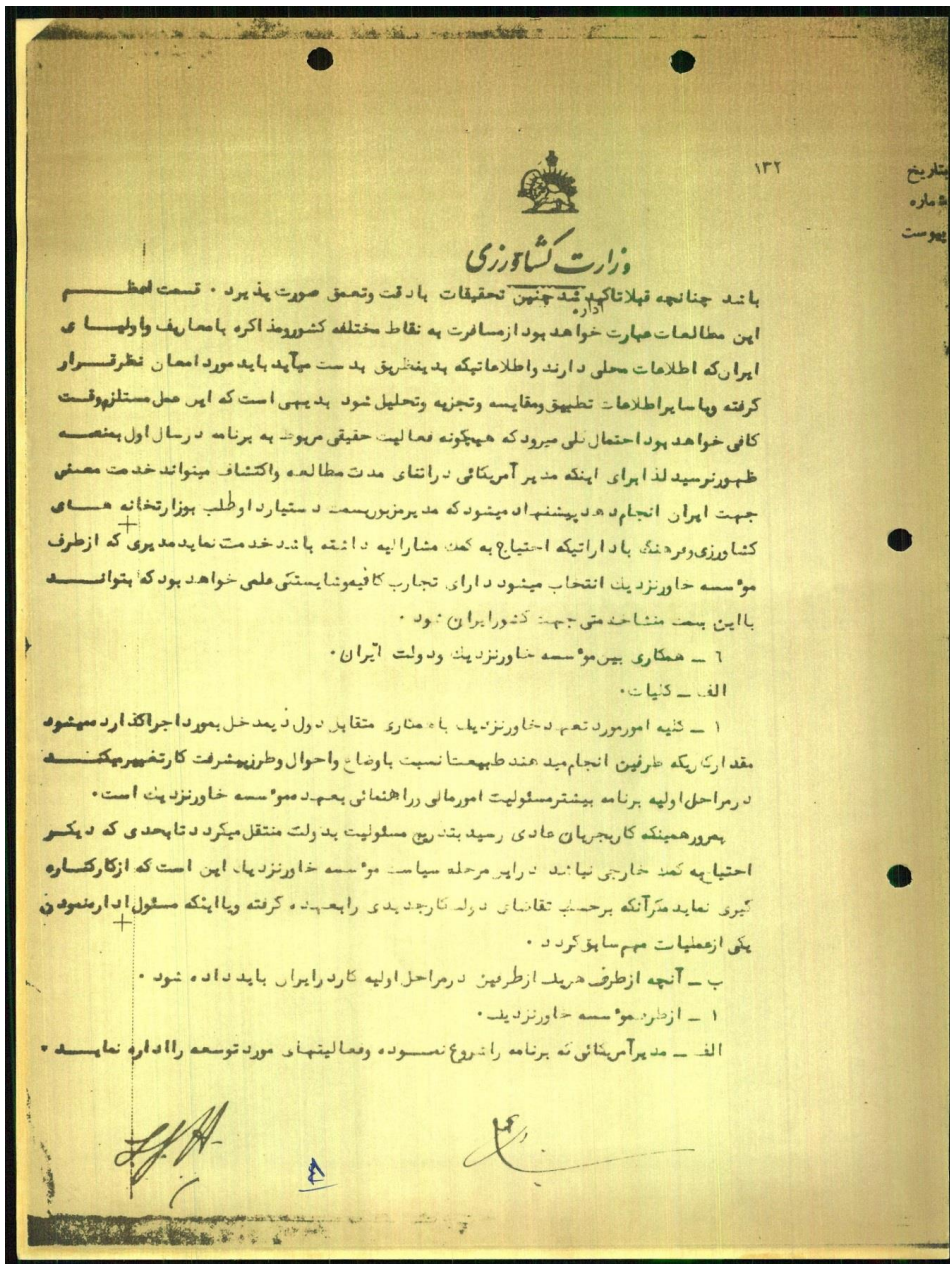 ۱۳۲
بتاریخ
شماره
پیوست
وزارت کشاورزی
باشد چنانچه قبلا تاکید شد چنین تحقیقات با دقت وتعمق صورت پذیرد . قسمت اعظم
اداره
این مطالعات عبارت خواهد بود از مسافرت به نقاط مختلفه کشور ومذاکره با معاریف واولیای
ایران که اطلاعات محلی دارند واطلاعاتیکه بدینطریق بدست میآید باید مورد امعان نظر قرار
گرفته وبا سایر اطلاعات تطبیق ومقایسه وتجزیه وتحلیل شود بدیهی است که این عمل مستلزم وقت
کافی خواهد بود احتمال کلی میرود که هیچگونه فعالیت حقیقی مربوط به برنامه در سال اول بمنصه
ظهور نرسید لذا برای اینکه مدیر آمریکائی در اثنای مدت مطالعه واکتشاف میتواند خدمت معینی
جهت ایران انجام دهد پیشنهاد میشود که مدیر مزبور بسمت دستیار داوطلب بوزارتخانه های
کشاورزی وفرهنگ یا داراتیکه احتیاج به کمک مشارالیه داشته باشد خدمت نماید مدیری که از طرف
موٴسسه خاور نزدیک انتخاب میشود دارای تجارب کافیه وشایستگی علمی خواهد بود که بتواند
با این سمت منشا خدمتی جهت کشور ایران شود .
٦ ــ همکاری بین موٴسسه خاور نزدیک ودولت ایران .
الف ــ کلیات .
۱ ــ کلیه امور مورد تعهد خاور نزدیک با همکاری متقابل دول ذیمدخل بمورد اجرا گذارده میشود
مقدار کاریکه طرفین انجام میدهند طبیعتا نسبت باوضاع واحوال وطرز پیشرفت کار تغییر میکند
در مراحل اولیه برنامه بیشتر مسئولیت امور مالی وراهنمائی بعهده موٴسسه خاور نزدیک است .
بمرور همینکه کار بجریان عادی رسید بتدریج مسئولیت بدولت منتقل میگردد تا بحدی که دیگر
احتیاج به کمک خارجی نباشد در این مرحله سیاست موٴسسه خاور نزدیک این است که از کار کناره
گیری نماید مگر آنکه برحسب تقاضای دولت کار جدیدی را بعهده گرفته ویا اینکه مسئول اداره نمودن
یکی از عملیات مهم سابق گردد .
ب ــ آنچه از طرف هریک از طرفین در مراحل اولیه کار در ایران باید داده شود .
۱ ــ از طرف موٴسسه خاور نزدیک .
الف ــ مدیر آمریکائی که برنامه را شروع نموده وفعالیتهای مورد توسعه را اداره نماید .